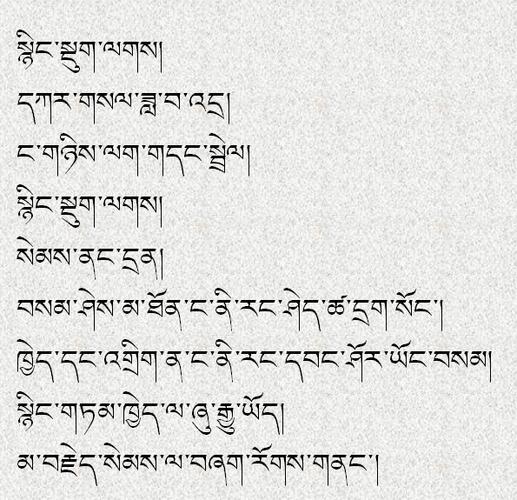 སྙིང་སྡུག་ལགས།
དཀར་གསལ་ཟླ་བ་འདྲ།
ང་གཉིས་ལག་གདང་སྦྲེལ།
སྙིང་སྡུག་ལགས།
སེམས་ནང་དྲན།
བསམ་ཤེས་མ་ཐོན་ང་ནི་རང་ཤེད་ཚ་དྲག་སོང་།
ཁྱེད་དང་འགྲིག་ན་ང་ནི་རང་དབང་ཤོར་ཡོང་བསམ།
སྙིང་གཏམ་ཁྱེད་ལ་ཞུ་རྒྱུ་ཡོད།
མ་བརྗེད་སེམས་ལ་བཞག་རོགས་གནང་།